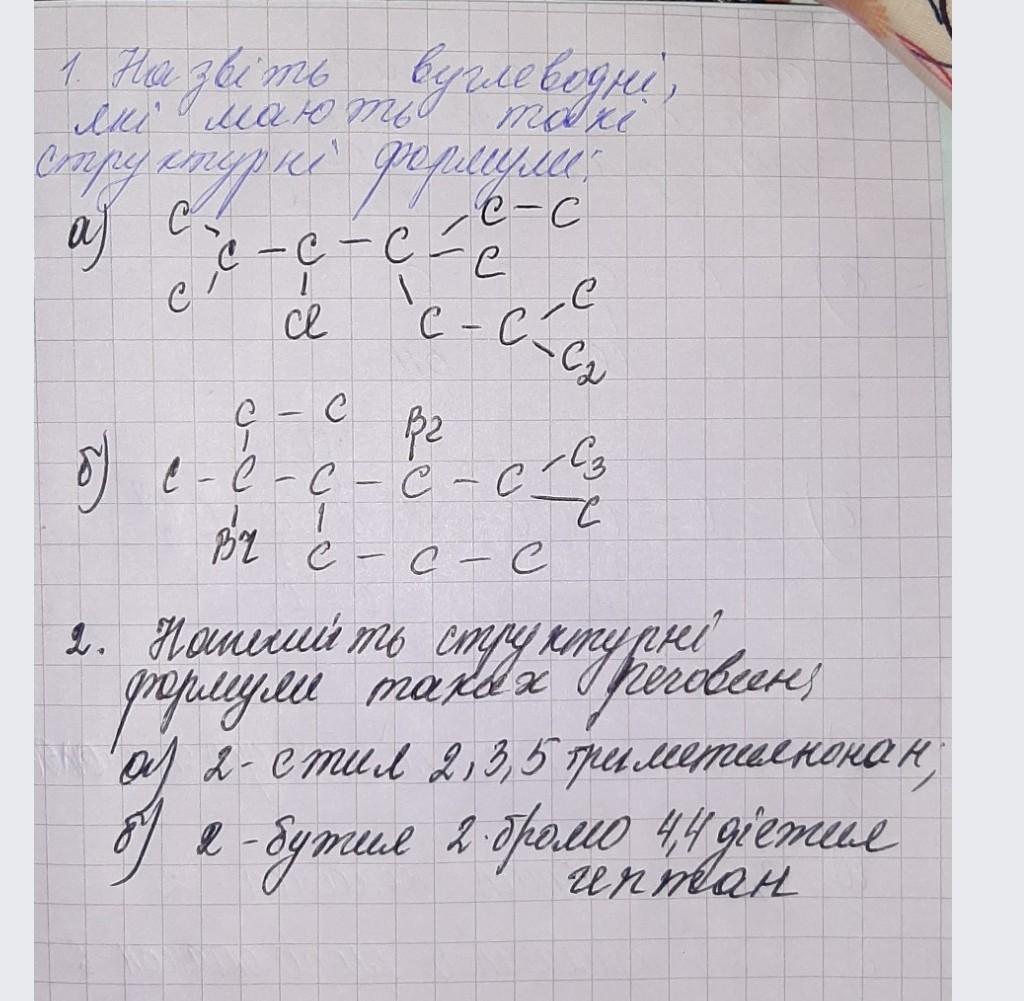 1. Назвіть вуглеводні,
які мають такі
структурні формули:
а) C C – C
C – C – C – C
C Cl C – C C
C₂
C – C Br
б) C – C – C – C – C C₃
C
Br C – C – C
2. Напишіть структурні
формули таких речовин;
а) 2 - етил 2,3,5 триметилнонан;
б) 2 - бутил 2.бромо 4,4 діетил
гептан